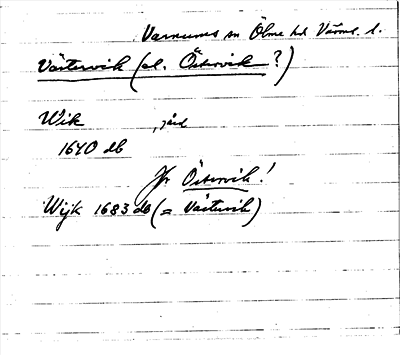 Varnums sn Ölme hd Värml. l.
Västervik (el. Östervik ?)
Wik , jord
1640 db
Jfr Östervik!
Wijk 1683 db (= Västervik)